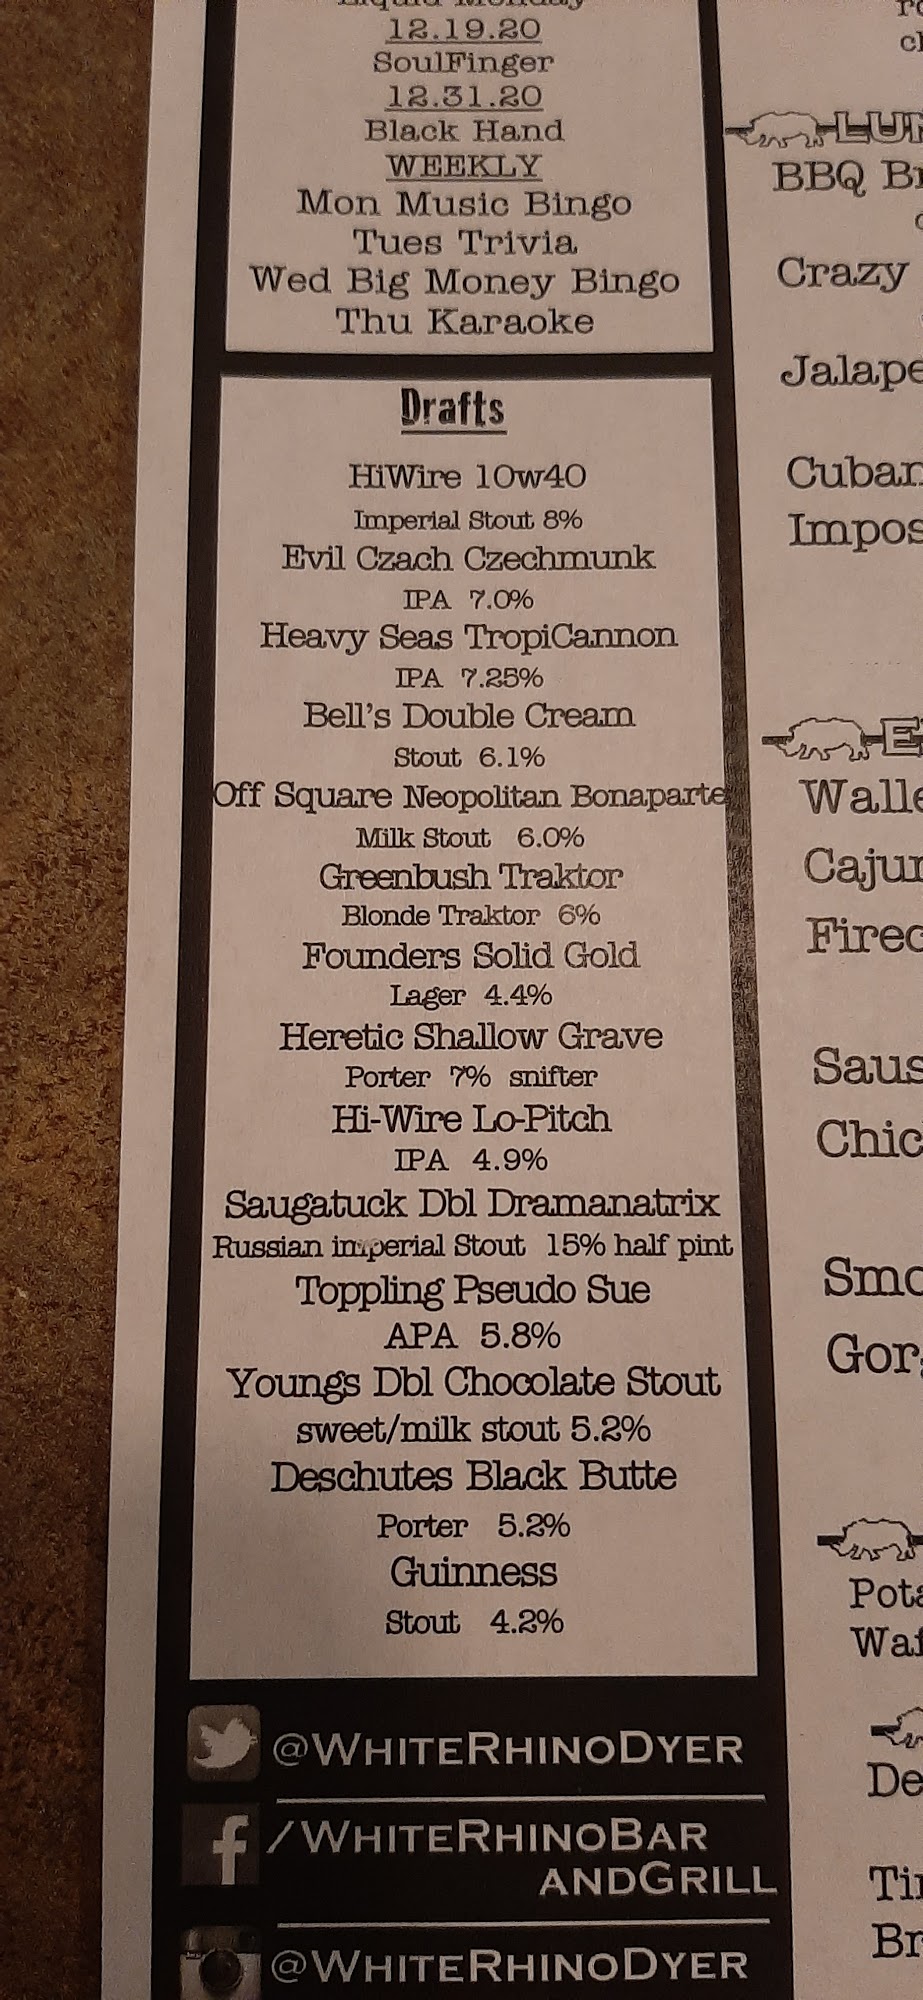 Liquid Monday
12.19.20
SoulFinger
12.31.20
Black Hand
WEEKLY
Mon Music Bingo
Tues Trivia
Wed Big Money Bingo
Thu Karaoke
Drafts
HiWire 10w40
Imperial Stout 8%
Evil Czach Czechmunk
IPA 7.0%
Heavy Seas TropiCannon
IPA 7.25%
Bell's Double Cream
Stout 6.1%
Off Square Neopolitan Bonaparte
Milk Stout 6.0%
Greenbush Traktor
Blonde Traktor 6%
Founders Solid Gold
Lager 4.4%
Heretic Shallow Grave
Porter 7% snifter
Hi-Wire Lo-Pitch
IPA 4.9%
Saugatuck Dbl Dramanatrix
Russian imperial Stout 15% half pint
Toppling Pseudo Sue
APA 5.8%
Youngs Dbl Chocolate Stout
sweet/milk stout 5.2%
Deschutes Black Butte
Porter 5.2%
Guinness
Stout 4.2%
@WHITERHINODYER
/WHITERHINOBAR
ANDGRILL
@WHITERHINODYER
BBQ
Crazy